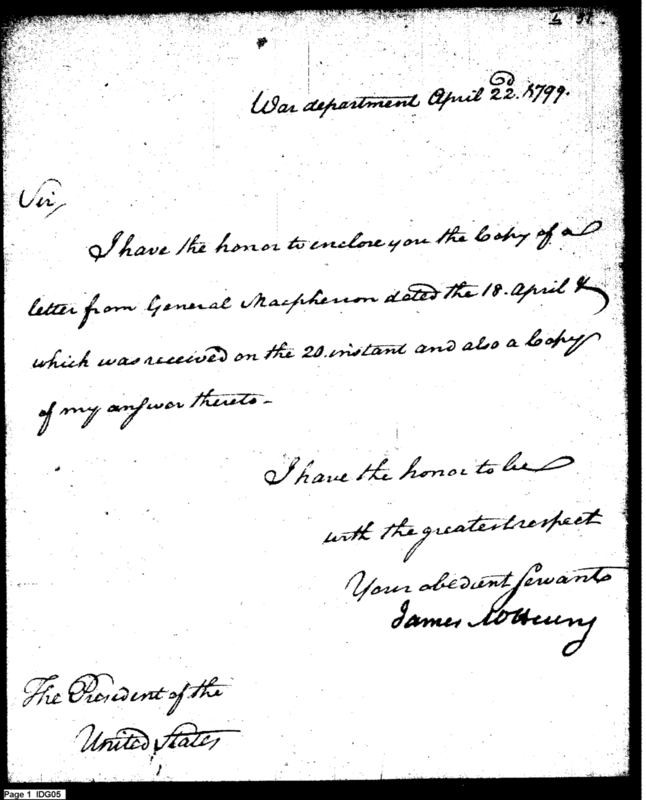 L 37.
War department April 22d. 1799.
Sir,
I have the honor to enclose you the Copy of a
letter from General Macpherson dated the 18. April &
which was received on the 20. instant and also a Copy
of my answer thereto -
I have the honor to be
with the greatest respect
Your obedient Servant
James McHenry
The President of the
United States
Page 1 IDG05